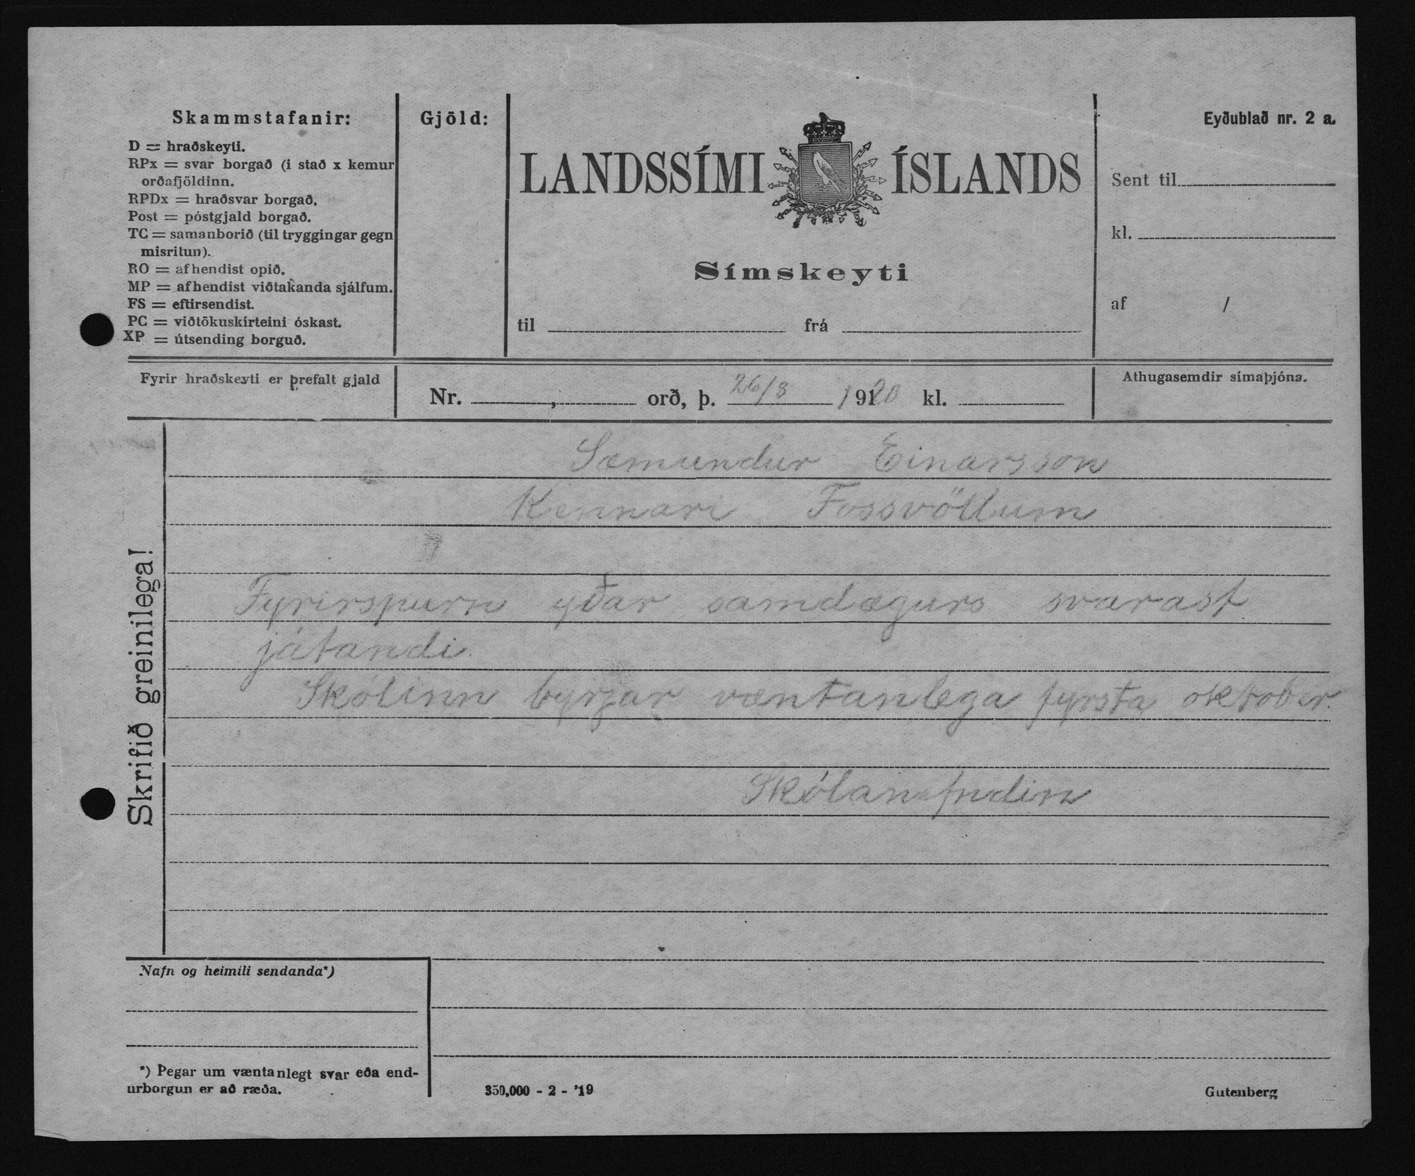 Skammstafanir:
D = hraðskeyti.
RPx = svar borgað (í stað x kemur
orðafjöldinn.
RPDx = hraðsvar borgað.
Post = póstgjald borgað.
TC = samanborið (til tryggingar gegn
misritun).
RO = afhendist opið.
MP = afhendist viðtakanda sjálfum.
FS = eftirsendist.
PC = viðtökuskírteini óskast.
XP = útsending borguð.
Gjöld:
LANDSSÍMI ÍSLANDS
Símskeyti
til frá
Eyðublað nr. 2 a.
Sent til
kl.
af /
Fyrir hraðskeyti er þrefalt gjald
Nr. , orð, þ. 26/8 1920 kl.
Athugasemdir símaþjóns.
Skrifið greinilega!
Sæmundur Einarsson
Kennari Fossvöllum
Fyrirspurn yðar samdægurs svarast
játandi.
Skólinn byrjar væntanlega fyrsta oktober.
Skólanefndin
Nafn og heimili sendanda*)
*) Þegar um væntanlegt svar eða end-
urborgun er að ræða.
350,000 - 2 - '19
Gutenberg